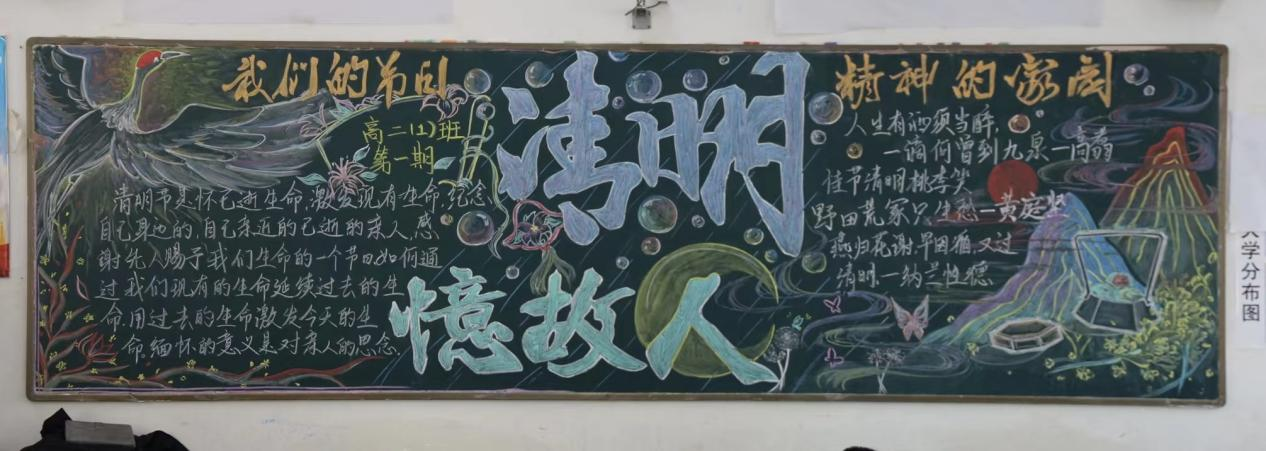 我们的节日
高二(1)班
第一期
清明节是怀已逝生命,激发现有生命,纪念
自己身边的,自己亲近的已逝的亲人,感
谢先人赐予我们生命的一个节日如何通
过我们现有的生命延续过去的生
命.用过去的生命激发今天的生
命.缅怀的意义是对亲人的思念.
清明
憶故人
精神的家园
人生有酒须当醉,
一滴何曾到九泉—高翥
佳节清明桃李笑
野田荒冢只生愁—黄庭坚
燕归花谢,早因循,又过
清明.—纳兰性德
学分布图